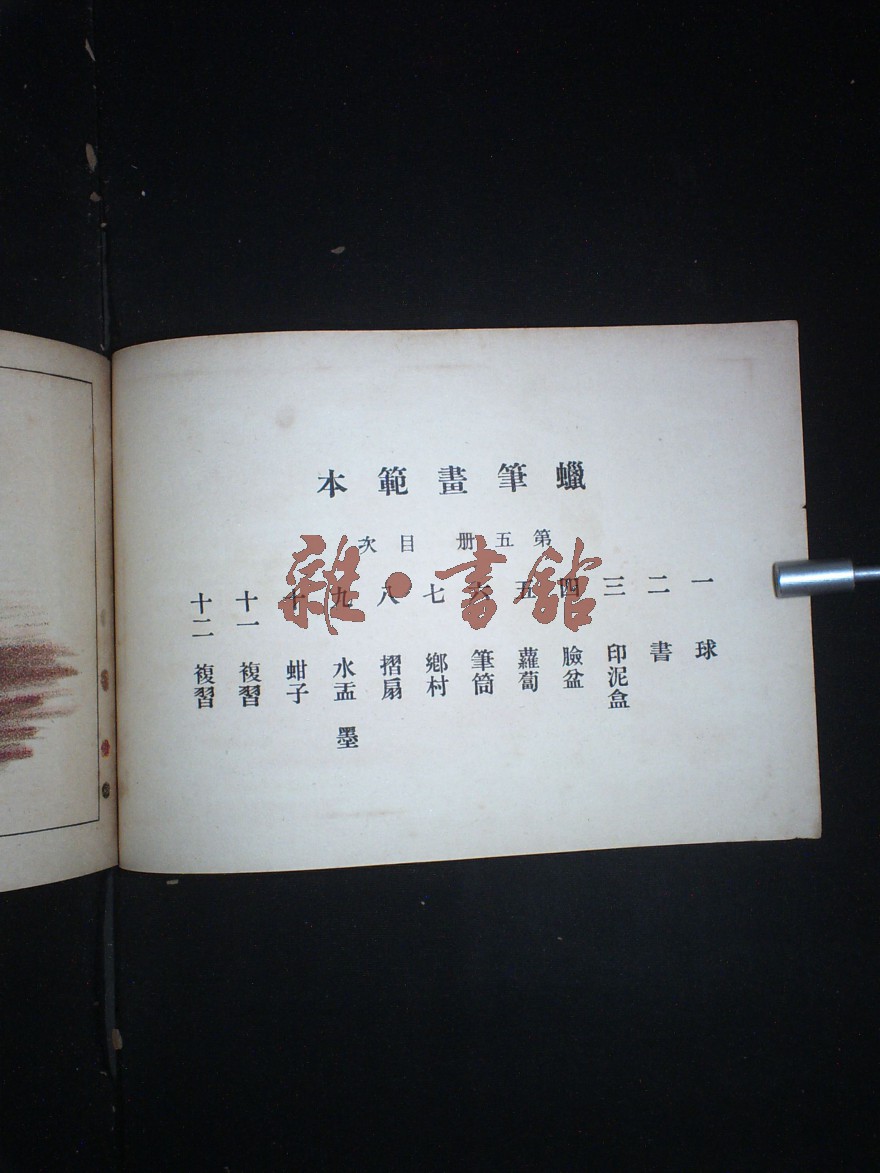 蠟筆畫範本
第五册 目次
一 球
二 書
三 印泥盒
四 臉盆
五 蘿蔔
六 筆筒
七 鄉村
八 摺扇
九 水盂 墨
十 蚶子
十一 複習
十二 複習
雜·書館